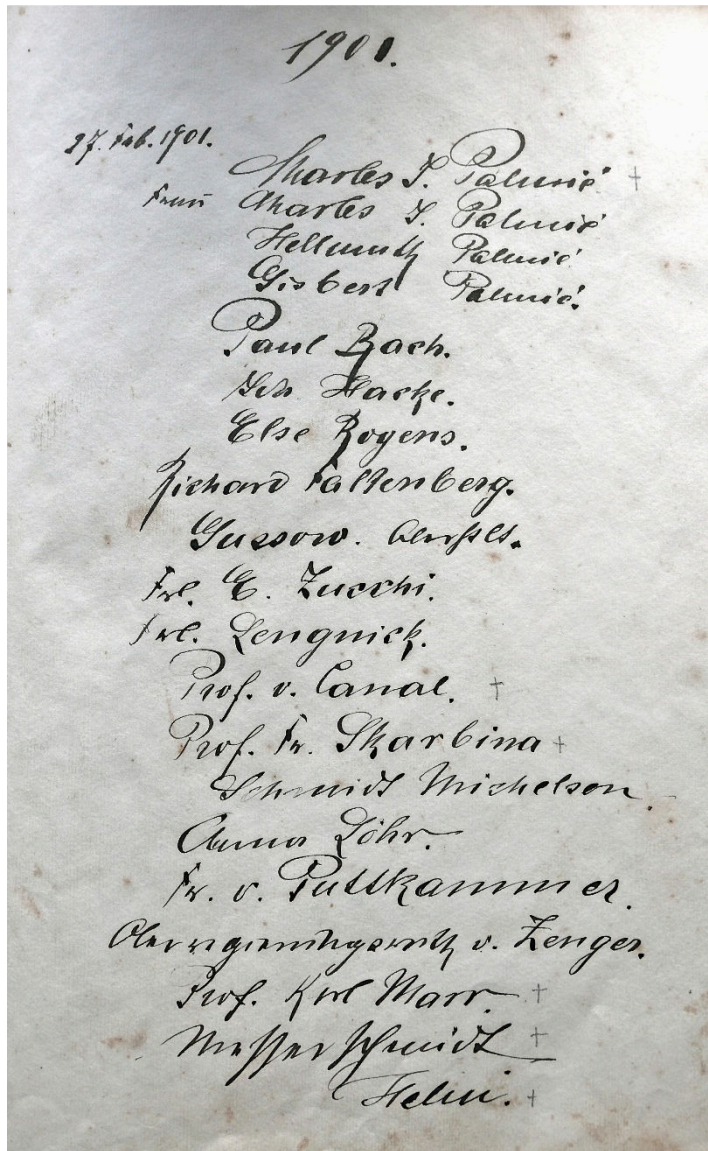 1901.
27. Feb. 1901.
Charles J. Palmié †
Frau Charles J. Palmié
Hellmuth Palmié
Gisbert Palmié.
Paul Bach.
Hacke.
Else Rogens.
Richard Falkenberg.
Gussow.
Frl. E. Zucchi.
Frl. Lengnick.
Prof. v. Canal. †
Prof. Fr. Skarbina †
Schmidt Michelsen.
Anna Löhr.
Fr. v. Puttkammer.
Oberregierungsrath v. Zenger.
Prof. Karl Marr †
Messerschmidt †
†